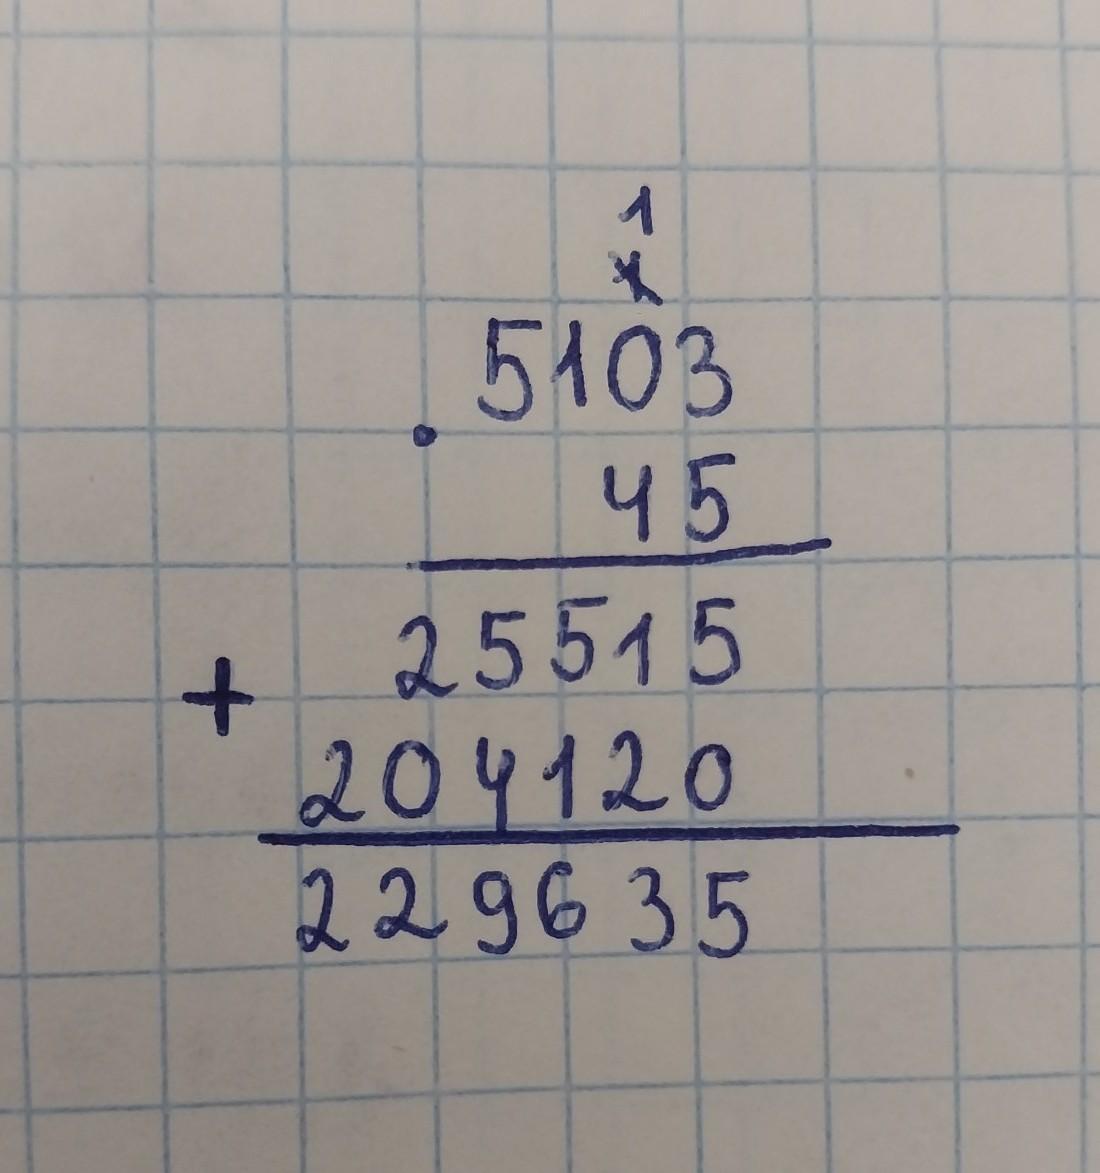 1
x
5103
·
45
25515
+
204120
229635